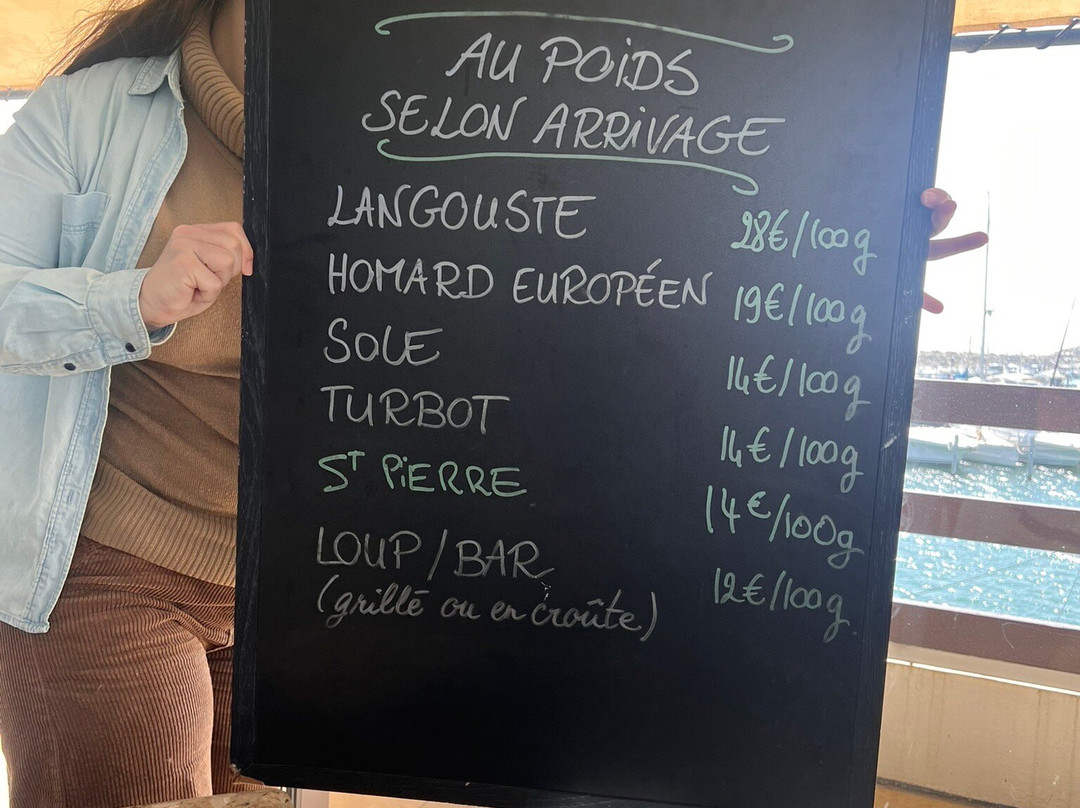 AU POIDS
SELON ARRIVAGE
LANGOUSTE 28€/100g
HOMARD EUROPÉEN 19€/100g
SOLE 14€/100g
TURBOT 14€/100g
ST PIERRE 14€/100g
LOUP/BAR 12€/100g
(grillé ou en croûte)